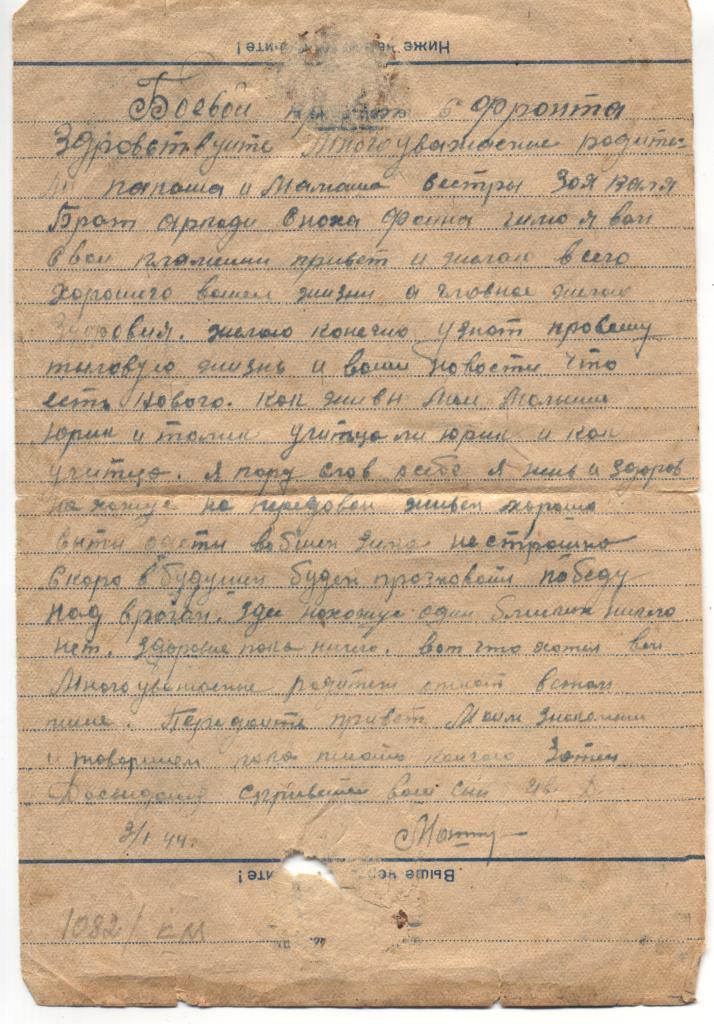 Ниже че ите!
Боевой с фронта
Здровствуите многоуважаемые родите-
ли папаша и мамаша сестры Зоя Каля
Брат Аркади Сноха Фаина шлю я вам
свои пламении привет и желаю всего
хорошего вашей жизни а главное желаю
Здоровия. желаю конечно узнат провашу
тыловую жизнь и ваши новости что
есть нового. как живы мои малыши
Юрик и толик учитца ли Юрик и как
учитца. Я пару слов осебе я жив и здоров
нахожус на передовой живем хорошо
вобшем зима нестрашна
скоро в будушем будем празновать победу
над врагам. Здес нахожус один близких никого
нет. Здоровие пока ничего. вот что хотел вам
многоуважаемые родители
Передаите привет моим знакомым
и товаришам пока писать кончаю Затем
Досвидания ваш сын
3/I 44.
Выше чер ите!
1082/ км